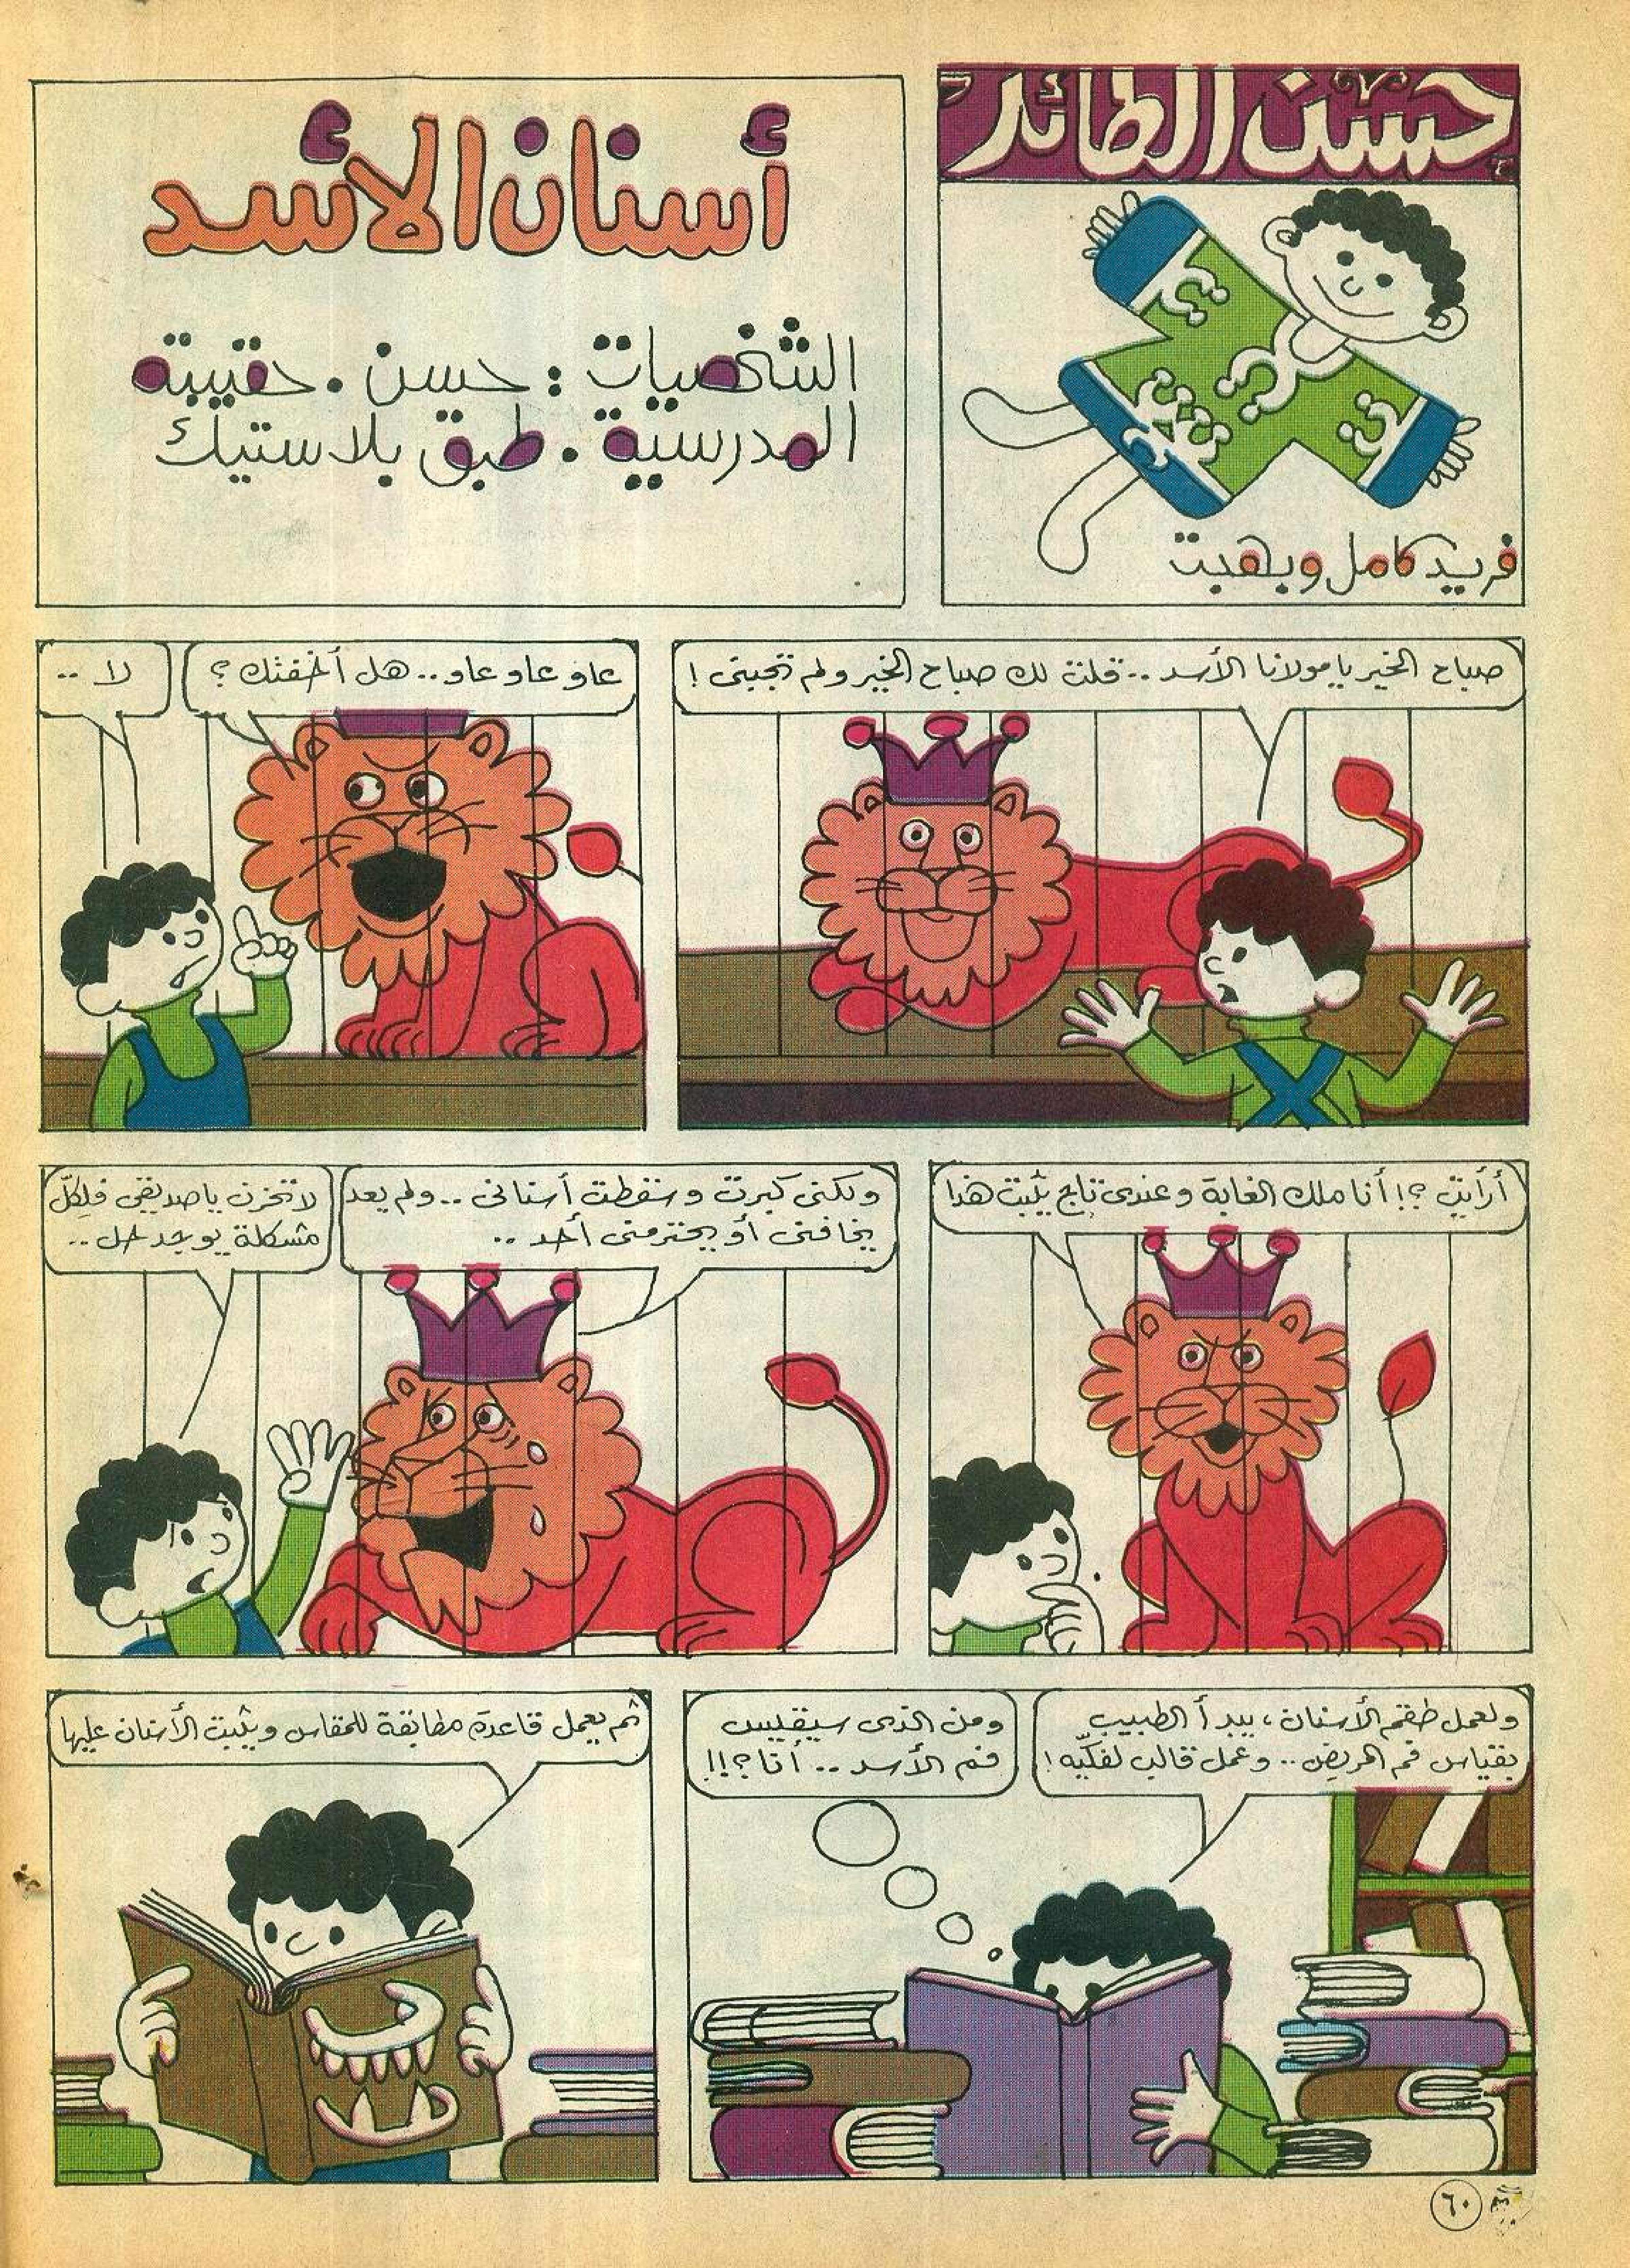 حسن الطائر
فريد كامل وبهجت
أسنان الأسد
الشخصيات : حسن . حقيبته
المدرسية . طبق بلاستيك
صباح الخير يا مولانا الأسد .. قلت لك صباح الخير ولم تجبنى !
عاو عاو عاو .. هل أخفتك ؟
لا ..
أرأيت ؟! أنا ملك الغابة وعندى تاج يثبت هذا
ولكنى كبرت وسقطت أسنانى .. ولم يعد
يخافنى أو يحترمنى أحد ..
لا تحزن يا صديقى فلكلّ
مشكلة يوجد حل ..
ولعمل طقم الأسنان ، يبدأ الطبيب
بقياس فم المريض .. وعمل قالب لفكيّه !
ومن الذى سيقيس
فم الأسد .. أنا ؟!!
ثم يعمل قاعدة مطابقة للمقاس ويثبت الأسنان عليها
٦٠